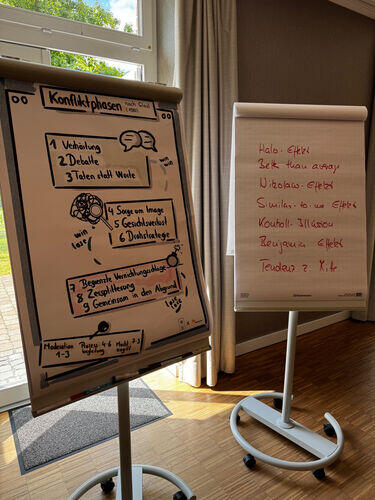 Konfliktphasen nach Glasl
1 Verhärtung
2 Debatte
3 Taten statt Worte
win
win
4 Sorge um Image
5 Gesichtsverlust
6 Drohstrategie
win
lose
7 Begrenzte Vernichtungsschläge
8 Zersplitterung
9 Gemeinsam in den Abgrund
lose
lose
Moderation
1-3
Prozess- 4-6
begleitung
Macht- 7-9
eingriff
Halo-Effekt
Bett than average
Nikolaus-Effekt
Similar-to-me Effekt
Kontroll-Illusion
Benjamin Effekt
Tendenz z.